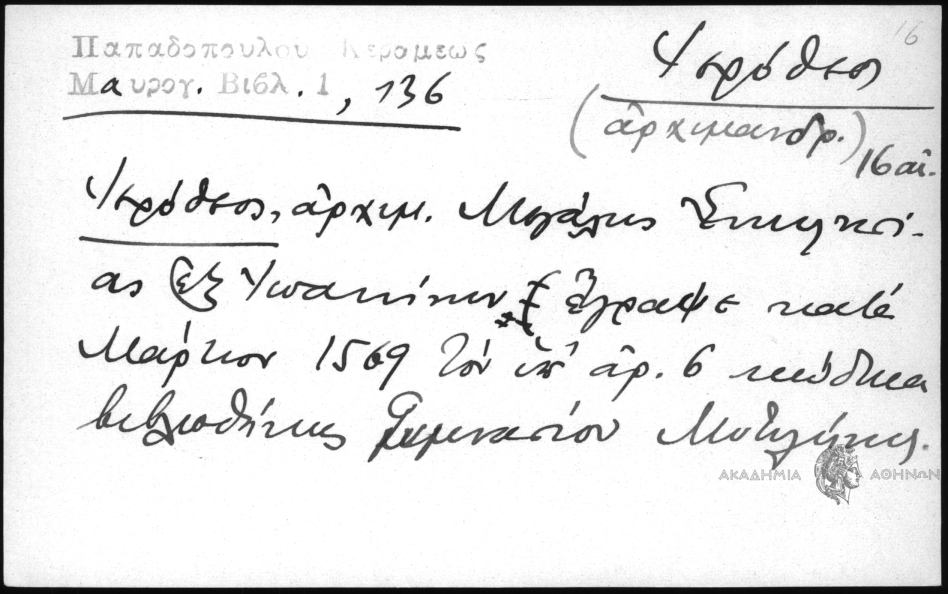 16
Παπαδοπούλου Κεραμέως
Μαυρογ. Βιβλ. 1, 136
Ἱερόθεος
(ἀρχιμανδρ.)
16 αἰ.
Ἱερόθεος, ἀρχιμ. Μεγάλης Ἐκκλησί-
ας ἐξ Ἰωαννίνων ἔγραψε κατὰ
Μάρτιον 1569 τὸν ὑπ' ἀρ. 6 κώδικα
βιβλιοθήκης Γυμνασίου Μυτιλήνης.
ΑΚΑΔΗΜΙΑ ΑΘΗΝΩΝ